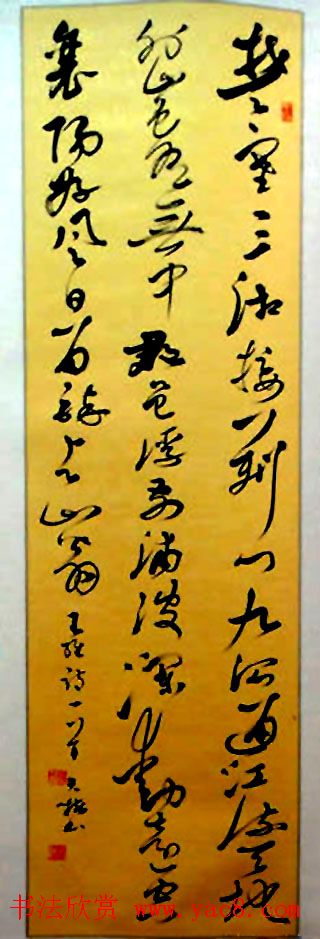 楚塞三湘接荆門九派通江流天地
外山色有無中郡邑浮前浦波瀾動遠空
襄陽好風日留醉與山翁
王維詩一首
书法欣赏 www.yac8.com